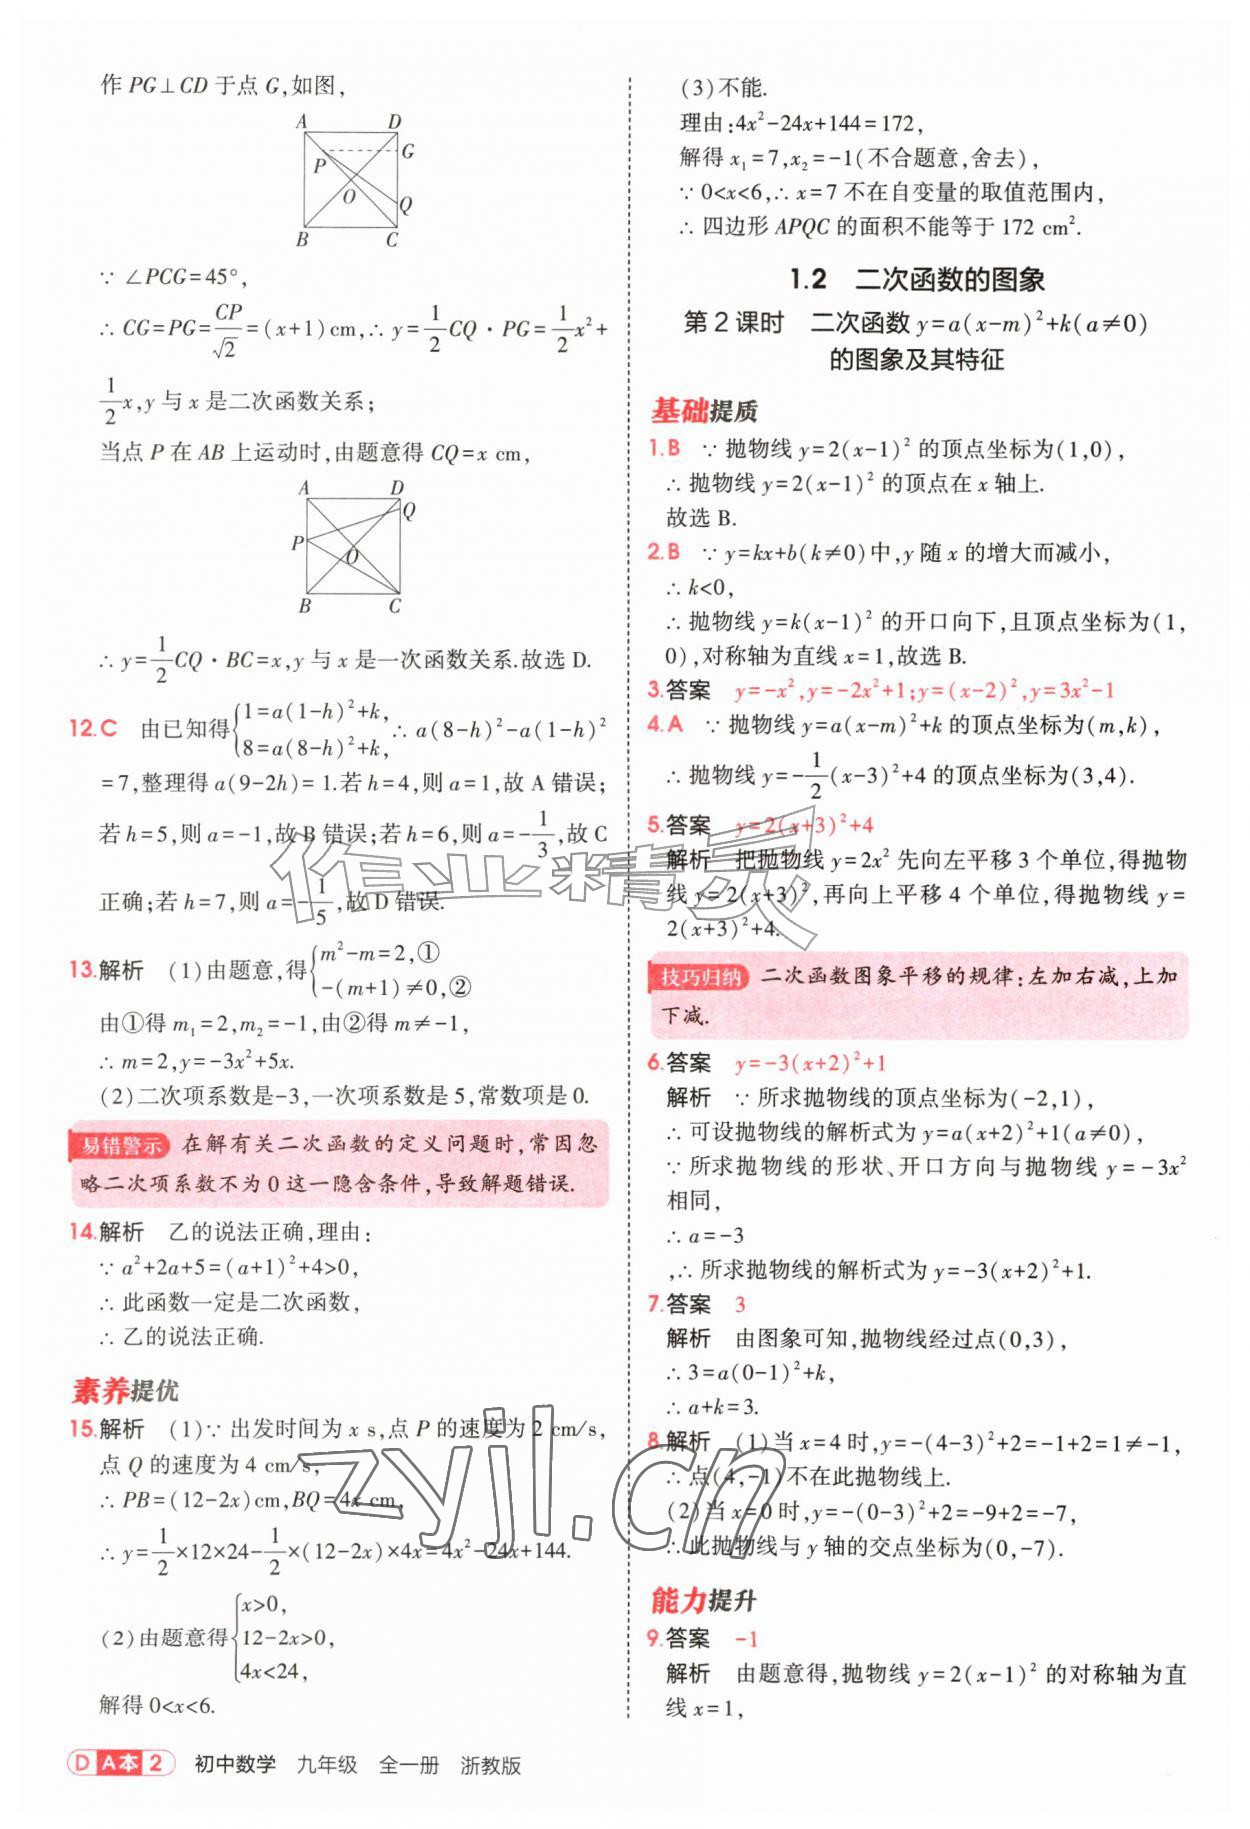 作 PG⊥CD 于点 G,如图,
A D
P G
O Q
B C
∵ ∠PCG=45°,
∴ CG=PG=CP/√2=(x+1)cm,∴ y=1/2CQ·PG=1/2x²+
1/2x,y 与 x 是二次函数关系;
当点 P 在 AB 上运动时,由题意得 CQ=x cm,
A D
Q
P O
B C
∴ y=1/2CQ·BC=x,y 与 x 是一次函数关系.故选 D.
12.C 由已知得{1=a(1-h)²+k, 8=a(8-h)²+k, ∴ a(8-h)²-a(1-h)²
=7,整理得 a(9-2h)=1.若 h=4,则 a=1,故 A 错误;
若 h=5,则 a=-1,故 B 错误;若 h=6,则 a=-1/3,故 C
正确;若 h=7,则 a=-1/5,故 D 错误.
13.解析 (1)由题意,得{m²-m=2,① -(m+1)≠0,②
由①得 m₁=2,m₂=-1,由②得 m≠-1,
∴ m=2,y=-3x²+5x.
(2)二次项系数是-3,一次项系数是 5,常数项是 0.
易错警示 在解有关二次函数的定义问题时,常因忽
略二次项系数不为 0 这一隐含条件,导致解题错误.
14.解析 乙的说法正确,理由:
∵ a²+2a+5=(a+1)²+4>0,
∴ 此函数一定是二次函数,
∴ 乙的说法正确.
素养提优
15.解析 (1)∵ 出发时间为 x s,点 P 的速度为 2 cm/s,
点 Q 的速度为 4 cm/s,
∴ PB=(12-2x)cm,BQ=4x cm,
∴ y=1/2×12×24-1/2×(12-2x)×4x=4x²-24x+144.
(2)由题意得{x>0, 12-2x>0, 4x<24,
解得 0<x<6.
(3)不能.
理由:4x²-24x+144=172,
解得 x₁=7,x₂=-1(不合题意,舍去),
∵ 0<x<6,∴ x=7 不在自变量的取值范围内,
∴ 四边形 APQC 的面积不能等于 172 cm².
1.2 二次函数的图象
第 2 课时 二次函数 y=a(x-m)²+k(a≠0)
的图象及其特征
基础提质
1.B ∵ 抛物线 y=2(x-1)² 的顶点坐标为(1,0),
∴ 抛物线 y=2(x-1)² 的顶点在 x 轴上.
故选 B.
2.B ∵ y=kx+b(k≠0)中,y 随 x 的增大而减小,
∴ k<0,
∴ 抛物线 y=k(x-1)² 的开口向下,且顶点坐标为(1,
0),对称轴为直线 x=1,故选 B.
3.答案 y=-x²,y=-2x²+1;y=(x-2)²,y=3x²-1
4.A ∵ 抛物线 y=a(x-m)²+k 的顶点坐标为(m,k),
∴ 抛物线 y=-1/2(x-3)²+4 的顶点坐标为(3,4).
5.答案 y=2(x+3)²+4
解析 把抛物线 y=2x² 先向左平移 3 个单位,得抛物
线 y=2(x+3)²,再向上平移 4 个单位,得抛物线 y=
2(x+3)²+4.
技巧归纳 二次函数图象平移的规律:左加右减,上加
下减.
6.答案 y=-3(x+2)²+1
解析 ∵ 所求抛物线的顶点坐标为(-2,1),
∴ 可设抛物线的解析式为 y=a(x+2)²+1(a≠0),
∵ 所求抛物线的形状、开口方向与抛物线 y=-3x²
相同,
∴ a=-3
,∴ 所求抛物线的解析式为 y=-3(x+2)²+1.
7.答案 3
解析 由图象可知,抛物线经过点(0,3),
∴ 3=a(0-1)²+k,
∴ a+k=3.
8.解析 (1)当 x=4 时,y=-(4-3)²+2=-1+2=1≠-1,
∴ 点(4,-1)不在此抛物线上.
(2)当 x=0 时,y=-(0-3)²+2=-9+2=-7,
∴ 此抛物线与 y 轴的交点坐标为(0,-7).
能力提升
9.答案 -1
解析 由题意得,抛物线 y=2(x-1)² 的对称轴为直
线 x=1,
作业精灵
zyjl.cn
D A本 2 初中数学 九年级 全一册 浙教版